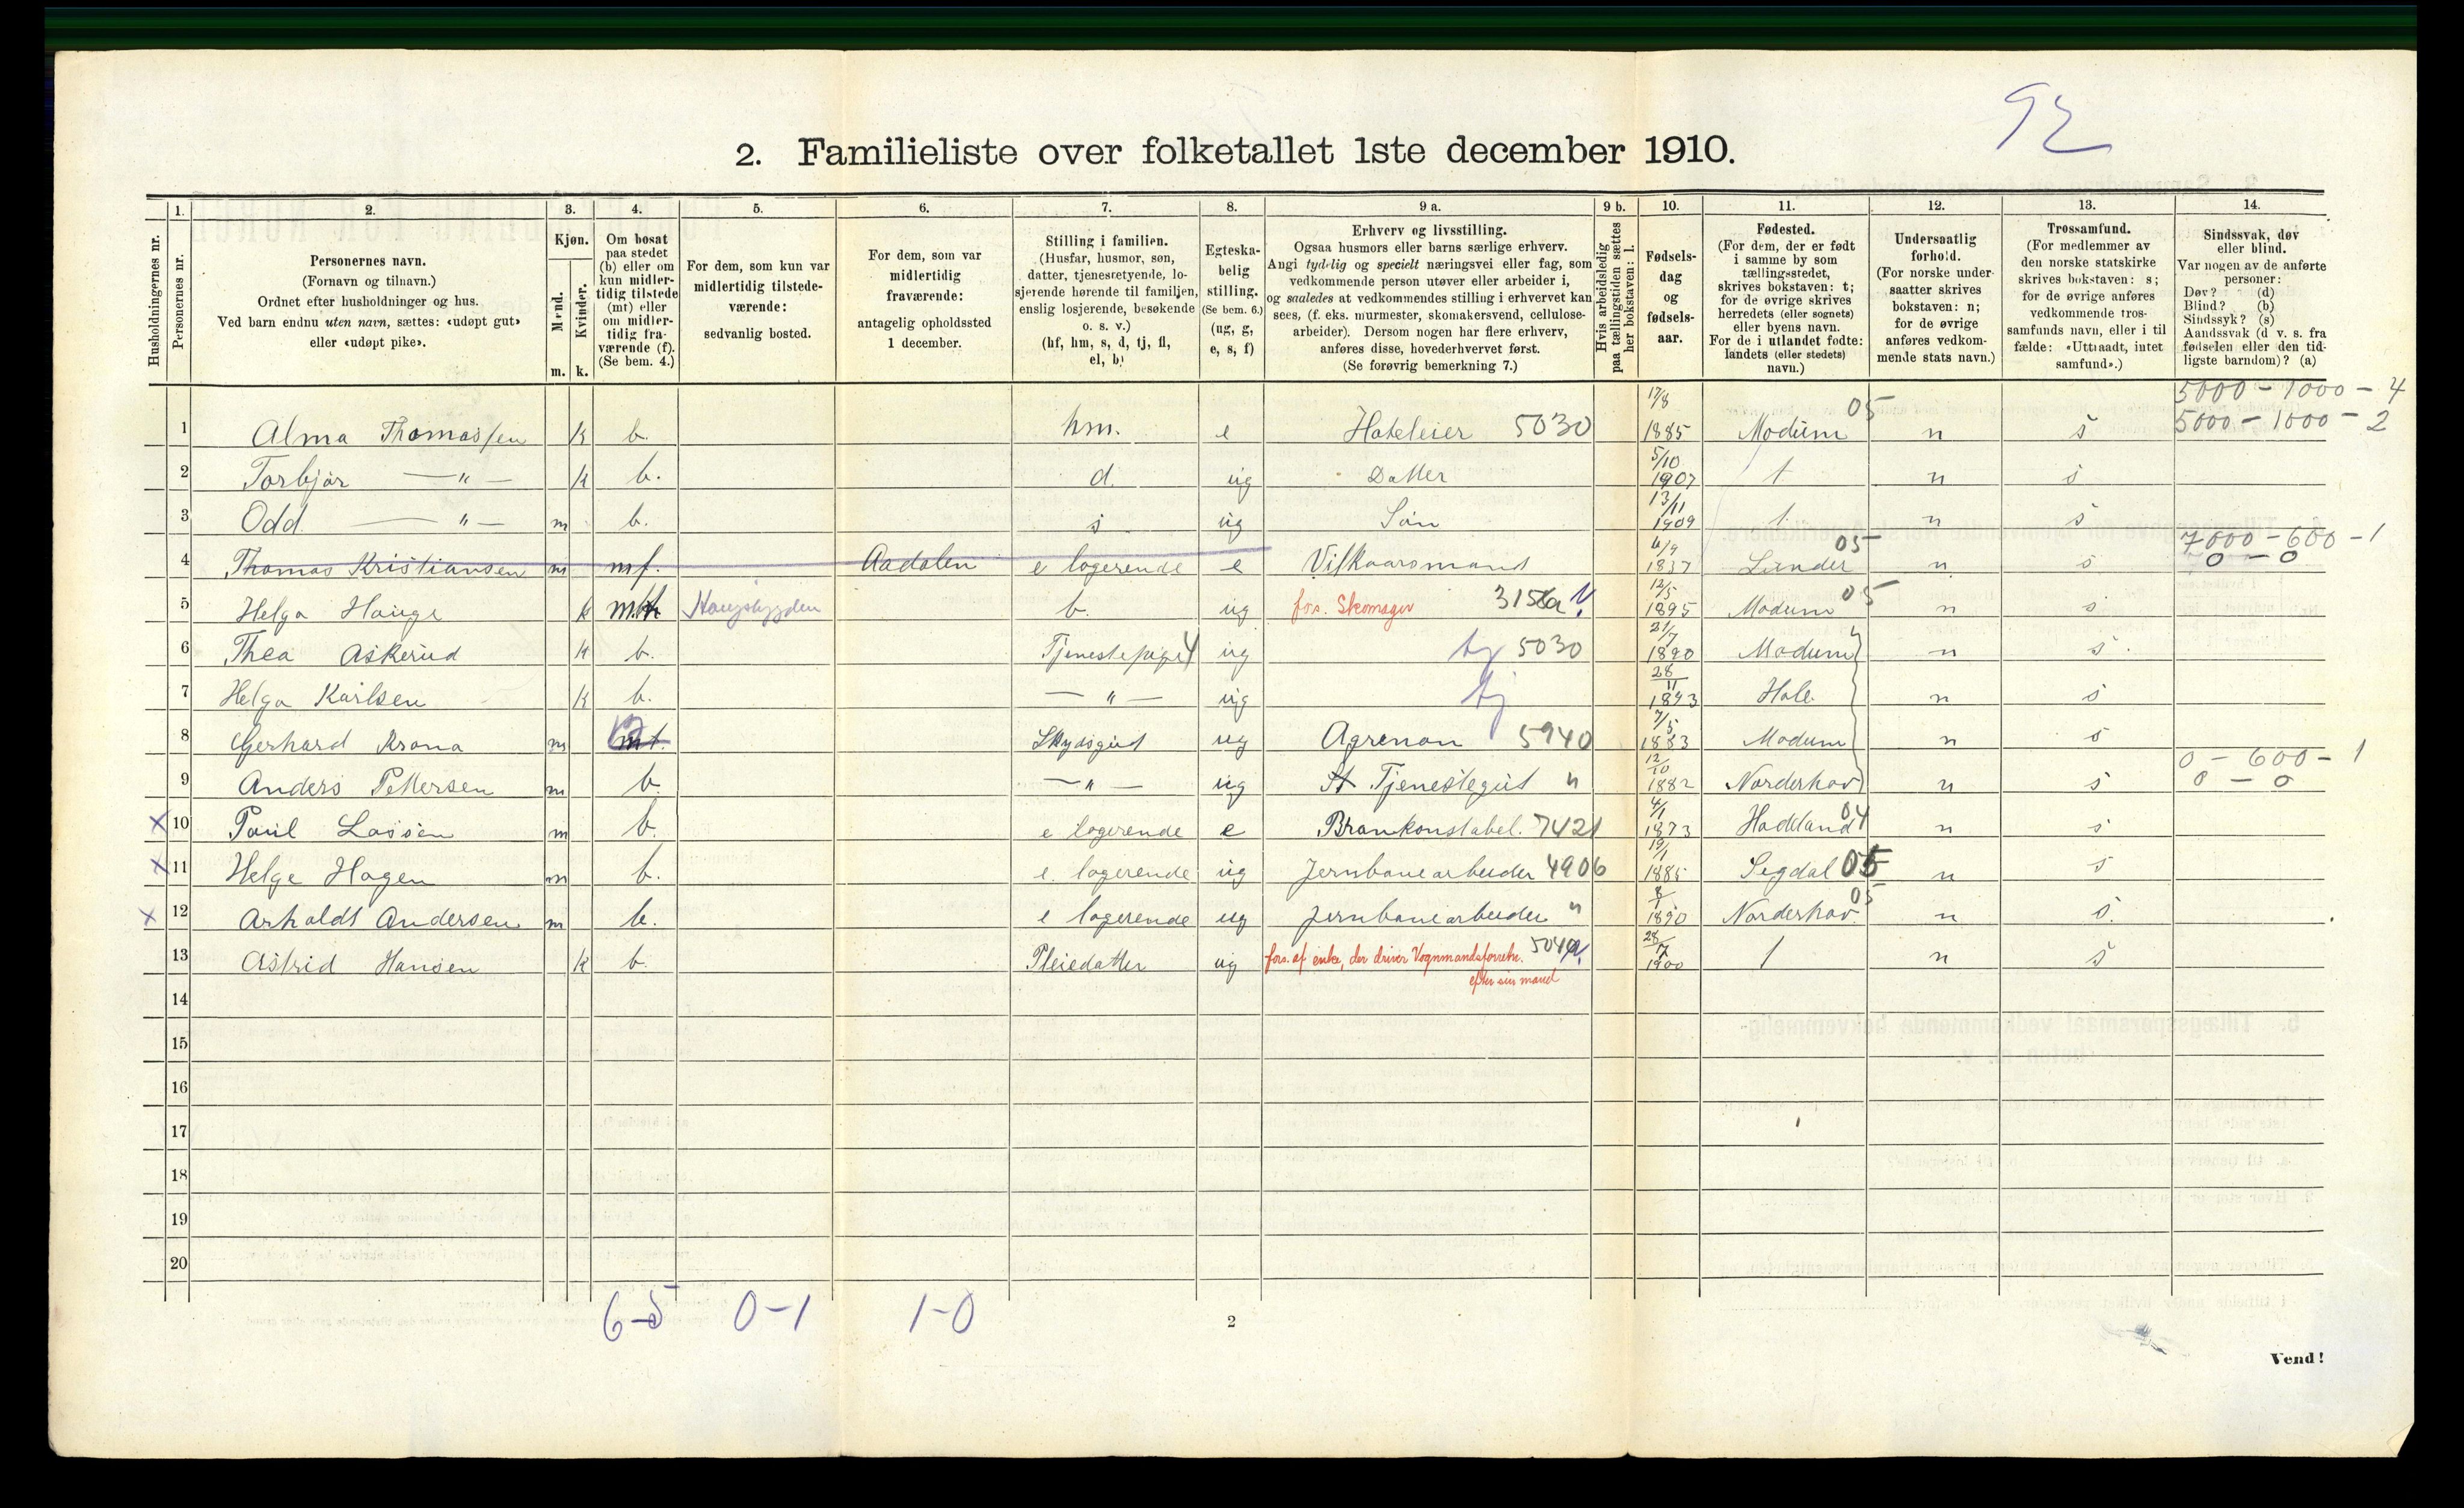 92
2. Familieliste over folketallet 1ste december 1910.
1. 2. 3. 4. 5. 6. 7. 8. 9 a. 9 b. 10. 11. 12. 13. 14.
Husholdningernes nr.
Personernes nr.
Personernes navn.
(Fornavn og tilnavn.)
Ordnet efter husholdninger og hus.
Ved barn endnu uten navn, sættes: «udøpt gut»
eller «udøpt pike».
Kjøn.
Mænd.
Kvinder.
m. k.
Om bosat
paa stedet
(b) eller om
kun midler-
tidig tilstede
(mt) eller
om midler-
tidig fra-
værende (f).
(Se bem. 4.)
For dem, som kun var
midlertidig tilstede-
værende:
sedvanlig bosted.
For dem, som var
midlertidig
fraværende:
antagelig opholdssted
1 december.
Stilling i familien.
(Husfar, husmor, søn,
datter, tjenestetyende, lo-
sjerende hørende til familjen,
enslig losjerende, besøkende
o. s. v.)
(hf, hm, s, d, tj, fl,
el, b)
Egteska-
belig
stilling.
(Se bem. 6.)
(ug, g,
e, s, f)
Erhverv og livsstilling.
Ogsaa husmors eller barns særlige erhverv.
Angi tydelig og specielt næringsvei eller fag, som
vedkommende person utøver eller arbeider i,
og saaledes at vedkommendes stilling i erhvervet kan
sees, (f. eks. murmester, skomakersvend, cellulose-
arbeider). Dersom nogen har flere erhverv,
anføres disse, hovederhvervet først.
(Se forøvrig bemerkning 7.)
Hvis arbeidsledig
paa tællingstiden sættes
her bokstaven: l.
Fødsels-
dag
og
fødsels-
aar.
Fødested.
(For dem, der er født
i samme by som
tællingsstedet,
skrives bokstaven: t;
for de øvrige skrives
herredets (eller sognets)
eller byens navn.
For de i utlandet fødte:
landets (eller stedets)
navn.)
Undersaatlig
forhold.
(For norske under-
saatter skrives
bokstaven: n;
for de øvrige
anføres vedkom-
mende stats navn.)
Trossamfund.
(For medlemmer av
den norske statskirke
skrives bokstaven: s;
for de øvrige anføres
vedkommende tros-
samfunds navn, eller i til
fælde: «Uttraadt, intet
samfund».)
Sindssvak, døv
eller blind.
Var nogen av de anførte
personer:
Døv? (d)
Blind? (b)
Sindssyk? (s)
Aandssvak (d v. s. fra
fødselen eller den tid-
ligste barndom)? (a)
5000 - 1000 - 4
1 Alma Thomassen k b. hm. e Hoteleier 5030 17/8 1885 Modum 05 n s 5000 - 1000 - 2
2 Torbjør —"— k b. d. ug Datter 5/10 1907 t n s
3 Odd —"— m b. s ug Søn 13/11 1909 t n s
7000 - 600 - 1
4 Thomas Kristiansen m mf. Aadalen e logerende e Vilkaarsmand 6/9 1837 Lunder 05 n s 0 - 0
5 Helga Hauge k mt Haugsbygden b. ug fors. Skomager 12/5 1895 Modum 05 n s
6 Thea Askerud k b. Tjenestepige 4 ug tj 5030 21/7 1890 Modum n s
7 Helga Karlsen k b. —"— ug tj 28/11 1893 Hole n s
8 Gerhard Krona m mt. Skydsgut ug Agrenon 5940 7/5 1883 Modum n s
0 - 600 - 1
9 Anders Pettersen m b. —"— ug St Tjenestegut " 12/10 1882 Norderhov n s 0 - 0
x 10 Paul Lassen m b. e logerende e Brankonstabel. 7421 4/1 1873 Hadeland 04 n s
x 11 Helge Hagen m b. e. logerende ug Jernbanearbeider 4906 19/1 1885 Sigdal 05 n s
x 12 Arholdt Andersen m b. e logerende ug Jernbanearbeider " 8/1 1890 Norderhov. 05 n s.
13 Astrid Hansen k b. Pleiedatter ug fors. af enke, der driver Vognmandsforretn. 28/7 1900 t n s
efter sin mand
14
15
16
17
18
19
20
6-5 0-1 1-0
2
Vend!